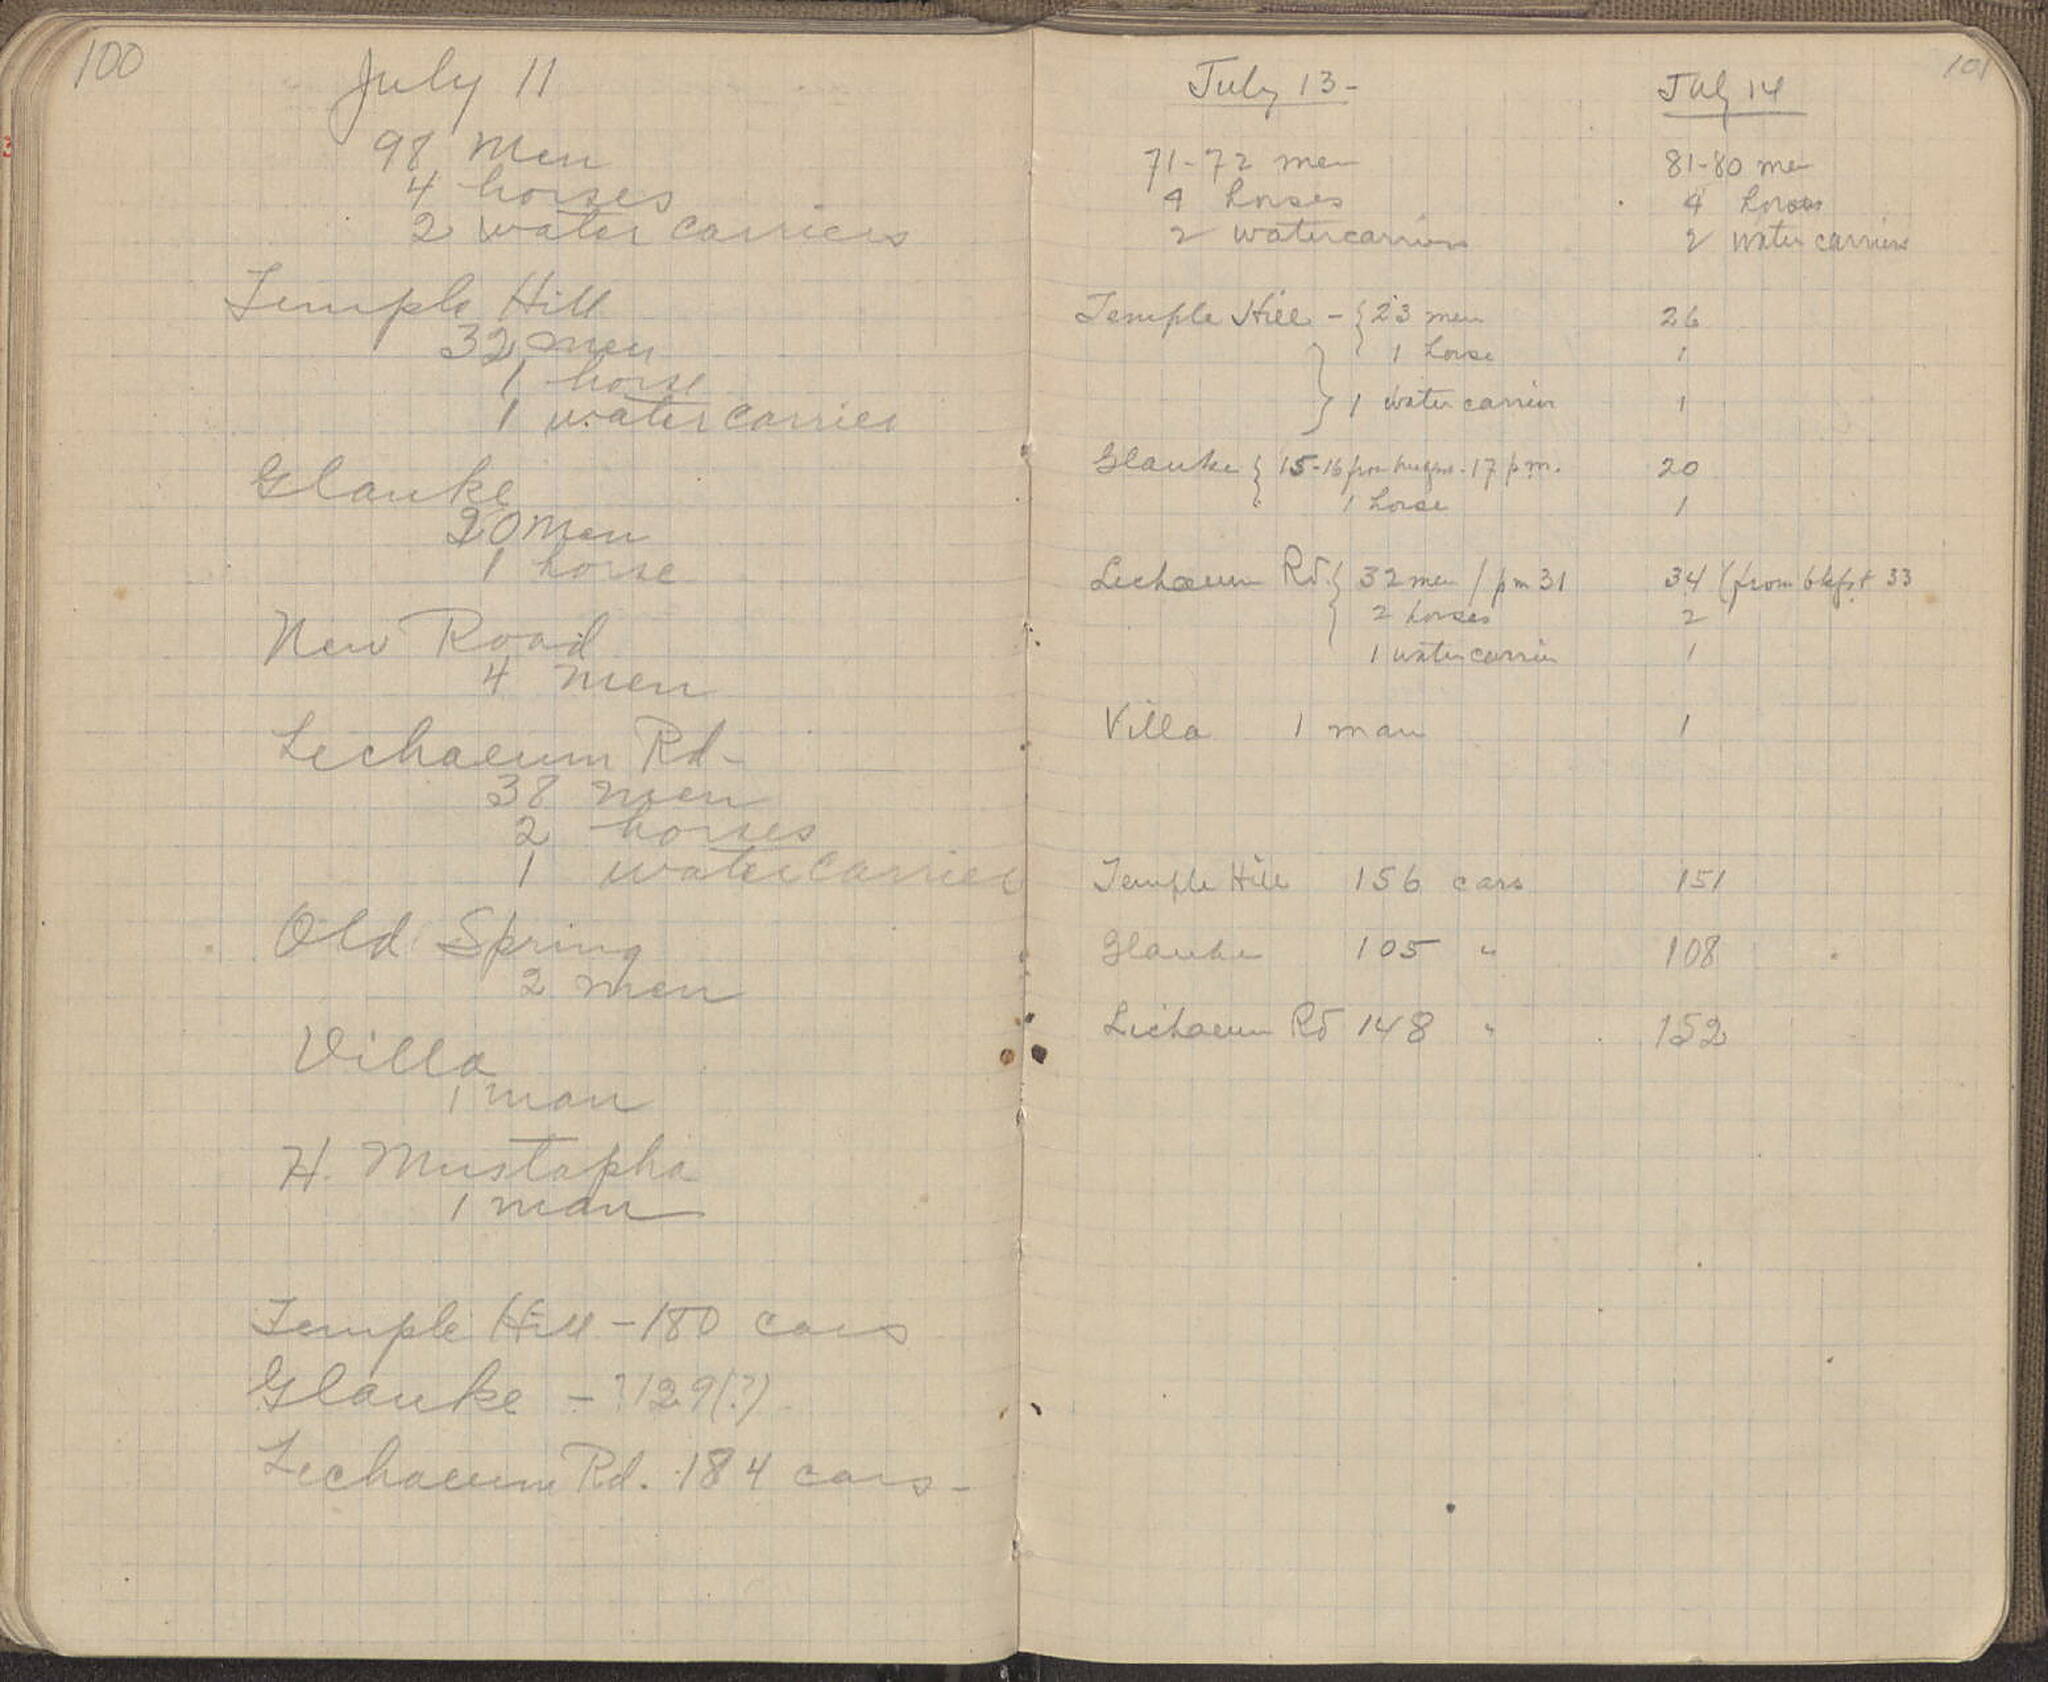 100
July 11
98 men
4 horses
2 water carriers
Temple Hill
32 men
1 horse
1 water carrier
Glauke
20 men
1 horse
New Road
4 men
Lechaeum Rd-
38 men
2 horses
1 water carrier
Old Spring
2 men
Villa
1 man
H. Mustapha
1 man
Temple Hill - 180 cars
Glauke - ?129(?)
Lechaeum Rd. 184 cars-
101
July 13- July 14
71-72 men 81-80 men
4 horses 4 horses
2 watercarriers 2 water carriers
Temple Hill - { 23 men 26
1 horse 1
} 1 water carrier 1
Glauke { 15-16 from - 17 p.m. 20
1 horse 1
Lechaeum Rd. { 32 men / pm 31 34 (from bkfst 33
2 horses 2
1 watercarrier 1
Villa 1 man 1
Temple Hill 156 cars 151
Glauke 105 " 108
Lechaeum Rd 148 " 152